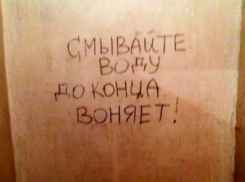 СМЫВАЙТЕ
ВОДУ
ДО КОНЦА.
ВОНЯЕТ!